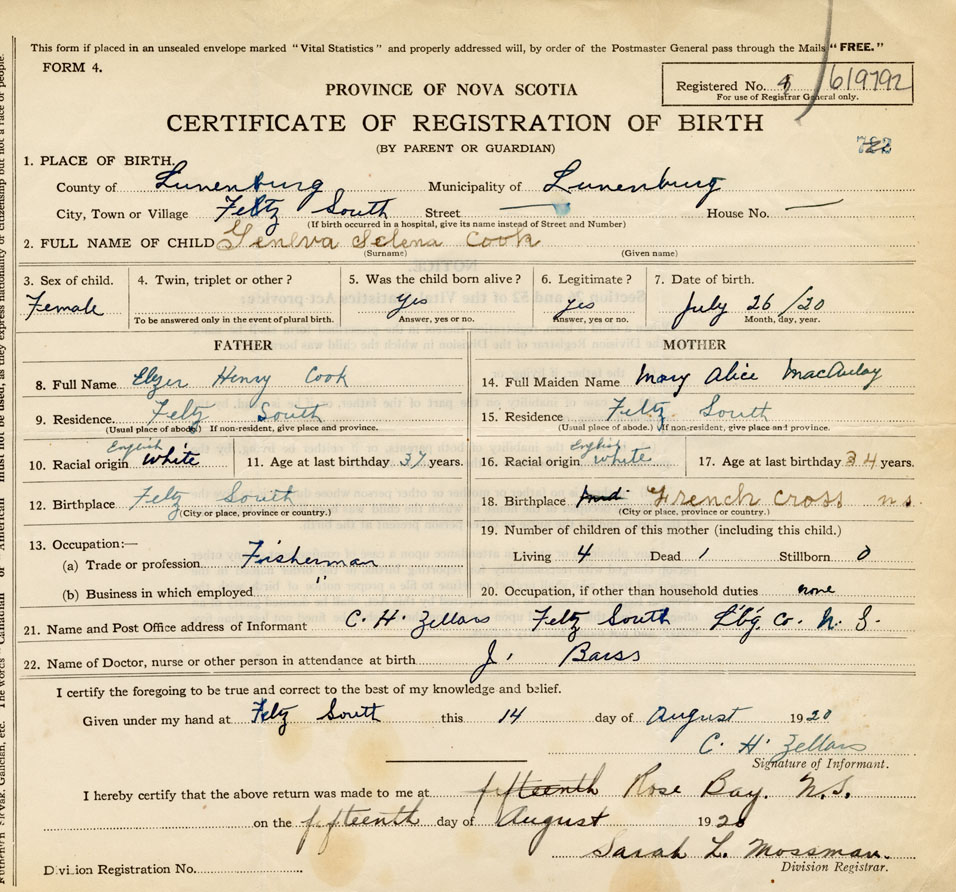 This form if placed in an unsealed envelope marked "Vital Statistics" and properly addressed will, by order of the Postmaster General pass through the Mails "FREE."
FORM 4.
Registered No. 4 619792
For use of Registrar General only.
PROVINCE OF NOVA SCOTIA
CERTIFICATE OF REGISTRATION OF BIRTH
(BY PARENT OR GUARDIAN)
1. PLACE OF BIRTH.
County of Lunenburg Municipality of Lunenburg
City, Town or Village Feltz South Street — House No. —
(If birth occurred in a hospital, give its name instead of Street and Number)
2. FULL NAME OF CHILD Geneva Selena Cook
(Surname) (Given name)
3. Sex of child. 4. Twin, triplet or other? 5. Was the child born alive? 6. Legitimate? 7. Date of birth.
Female yes yes July 26 /20
To be answered only in the event of plural birth. Answer, yes or no. Answer, yes or no. Month, day, year.
FATHER MOTHER
8. Full Name Elzer Henry Cook 14. Full Maiden Name Mary Alice MacAulay
9. Residence Feltz South 15. Residence Feltz South
(Usual place of abode) If non-resident, give place and province. (Usual place of abode.) If non-resident, give place and province.
10. Racial origin English White 11. Age at last birthday 37 years. 16. Racial origin English White 17. Age at last birthday 34 years.
12. Birthplace Feltz South 18. Birthplace French Cross n s.
(City or place, province or country.) (City or place, province or country.)
13. Occupation:— 19. Number of children of this mother (including this child.)
(a) Trade or profession Fisherman Living 4 Dead 1 Stillborn 0
(b) Business in which employed " 20. Occupation, if other than household duties none
21. Name and Post Office address of Informant C. H. Zellars Feltz South L'bg. Co. N. S.
22. Name of Doctor, nurse or other person in attendance at birth J. Barss
I certify the foregoing to be true and correct to the best of my knowledge and belief.
Given under my hand at Feltz South this 14 day of August 1920
C. H. Zellars
Signature of Informant.
I hereby certify that the above return was made to me at fifteenth Rose Bay. N.S.
on the fifteenth day of August 1920
Sarah L. Mossman.
Division Registration No. Division Registrar.